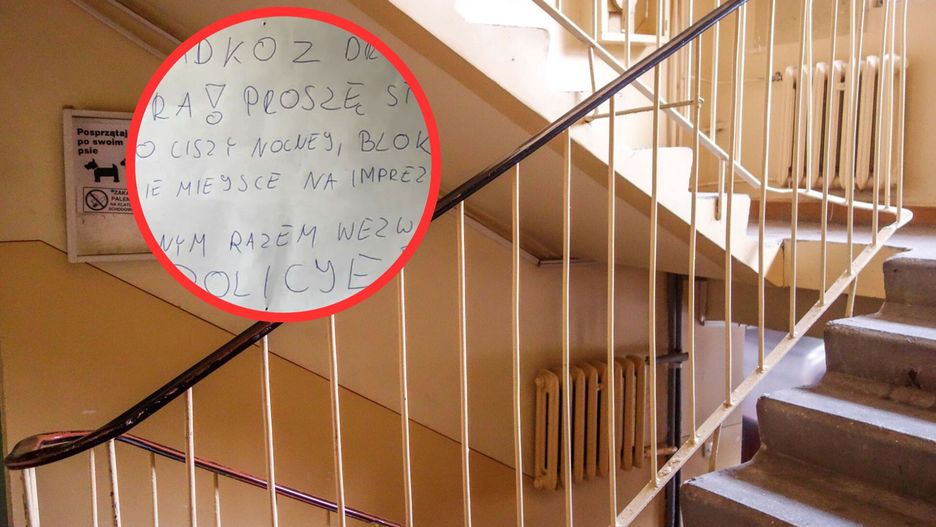 ADKO Z DR
RA! PROSZĘ ST
O CISZY NOCNEJ, BLOK
IE MIEYSCE NA IMPREZ
NYM RAZEM WEZW
POLICYE
Posprzątaj
po swoim
psie
ZAKA
PALEN
NA KLAT
SCHODOW